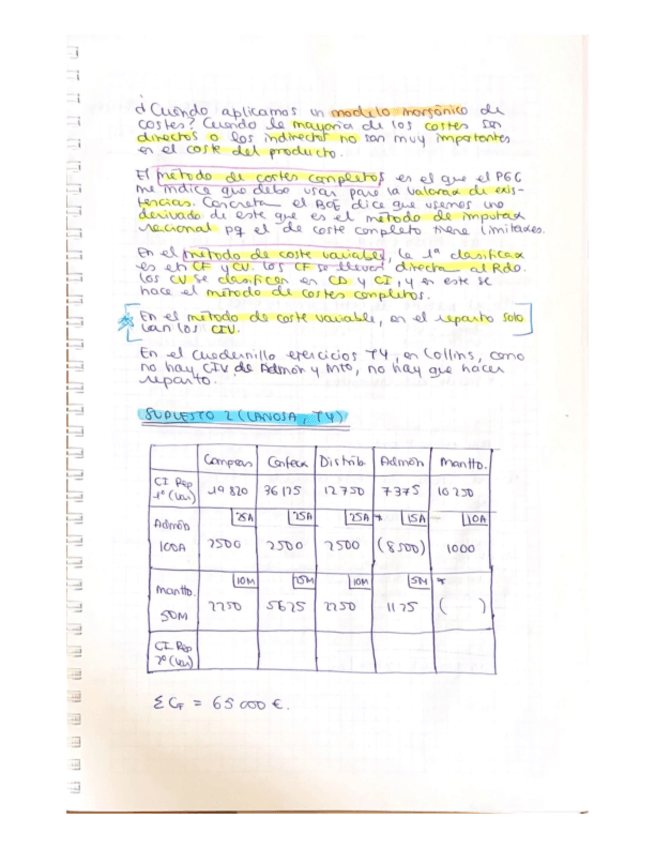 ¿Cuándo aplicamos un modelo inorgánico de
costes? Cuando la mayoría de los costes son
directos o los indirectos no son muy importantes
en el coste del producto.
El método de costes completos es el que el PGC
me indica que debo usar para la valorax de exis-
tencias. Concreta el BOE dice que usemos uno
derivado de este que es el método de imputax
racional pq el de coste completo tiene limitaxes.
En el método de coste variable, la 1ª clasificax
es en CF y CV. Los CF se llevan directa al Rdo.
Los CV se clasifican en CD y CI, y en este se
hace el método de costes completos.
* En el método de coste variable, en el reparto solo
van los CIV.
En el cuadernillo ejercicios T4, en Collins, como
no hay CIV de Admón y Mto, no hay que hacer
reparto.
SUPUESTO 2 (LANOSA, T4)
Compras Confecx Distrib. Admón Mantto.
CI Rep 1º (Var) 19 820 36 125 12 750 7 375 10 250
25A 25A 25A * 15A 10A
Admón 100A 2500 2500 2500 (8500) 1000
10M 25M 10M 5M *
Mantto. 50M 2250 5625 2250 1125 ( )
CI Rep 2º (Var)
ΣCF = 65 000 €.